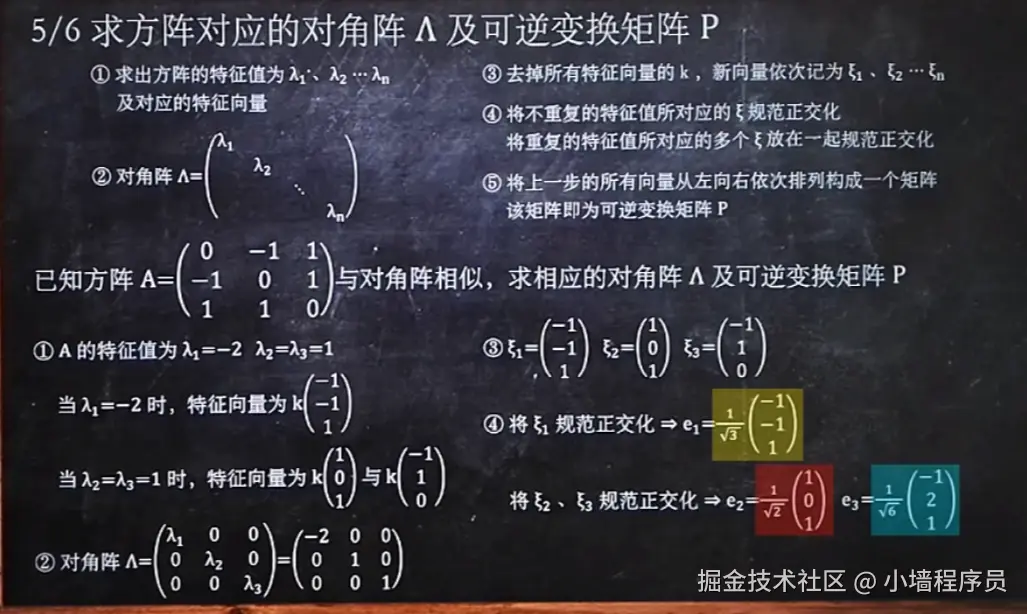 5/6 求方阵对应的对角阵 Λ 及可逆变换矩阵 P
① 求出方阵的特征值为 λ₁、λ₂ ⋯ λₙ
及对应的特征向量
② 对角阵 Λ=
λ₁
λ₂
⋱
λₙ
③ 去掉所有特征向量的 k ，新向量依次记为 ξ₁ 、ξ₂ ⋯ ξₙ
④ 将不重复的特征值所对应的 ξ 规范正交化
将重复的特征值所对应的多个 ξ 放在一起规范正交化
⑤ 将上一步的所有向量从左向右依次排列构成一个矩阵
该矩阵即为可逆变换矩阵 P
已知方阵 A=(0 −1 1; −1 0 1; 1 1 0)与对角阵相似，求相应的对角阵 Λ 及可逆变换矩阵 P
① A 的特征值为 λ₁=−2 λ₂=λ₃=1
当 λ₁=−2 时，特征向量为 k(−1; −1; 1)
当 λ₂=λ₃=1 时，特征向量为 k(1; 0; 1) 与 k(−1; 1; 0)
② 对角阵 Λ=(λ₁ 0 0; 0 λ₂ 0; 0 0 λ₃)=(−2 0 0; 0 1 0; 0 0 1)
③ ξ₁=(−1; −1; 1) ξ₂=(1; 0; 1) ξ₃=(−1; 1; 0)
④ 将 ξ₁ 规范正交化 ⇒ e₁=1/√3(−1; −1; 1)
将 ξ₂ 、ξ₃ 规范正交化 ⇒ e₂=1/√2(1; 0; 1) e₃=1/√6(−1; 2; 1)
掘金技术社区 @ 小墙程序员